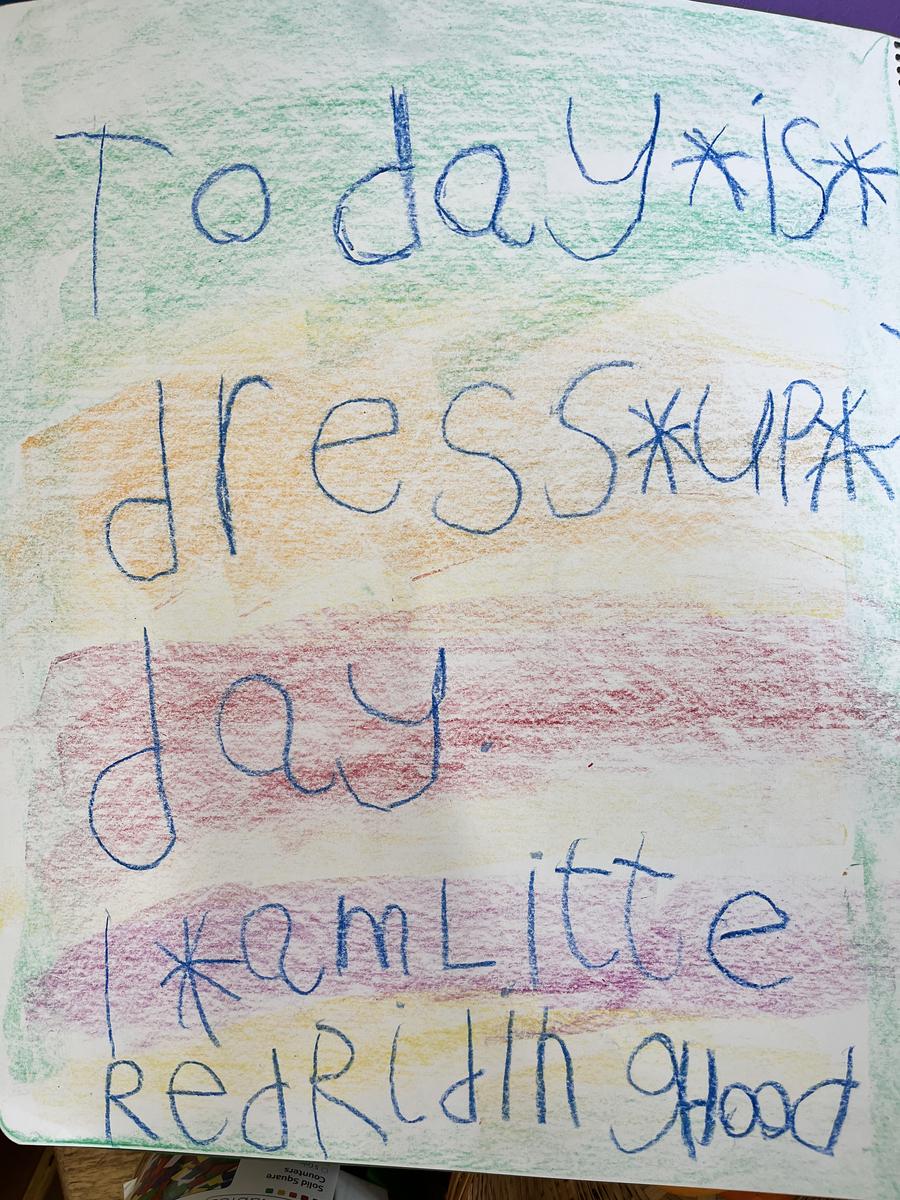 Today*is*
dress*up*
day.
I*amLitte
RedRidinghood
Solid Square
Counters